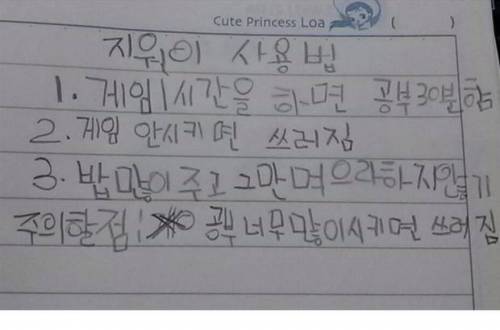 Cute Princess Loa ( )
지원이 사용법
1. 게임 1시간을 하면 공부 30분함
2. 게임 안시키면 쓰러짐
3. 밥 많이 주고 그만 먹으라하지않기
주의할점: 공부 너무많이시키면 쓰러짐